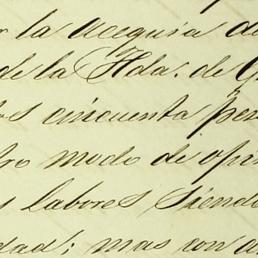 r la acequia de
de la Hda. de G
os cincuenta pe
tro modo de opi
s labores siend
dad; mas con a